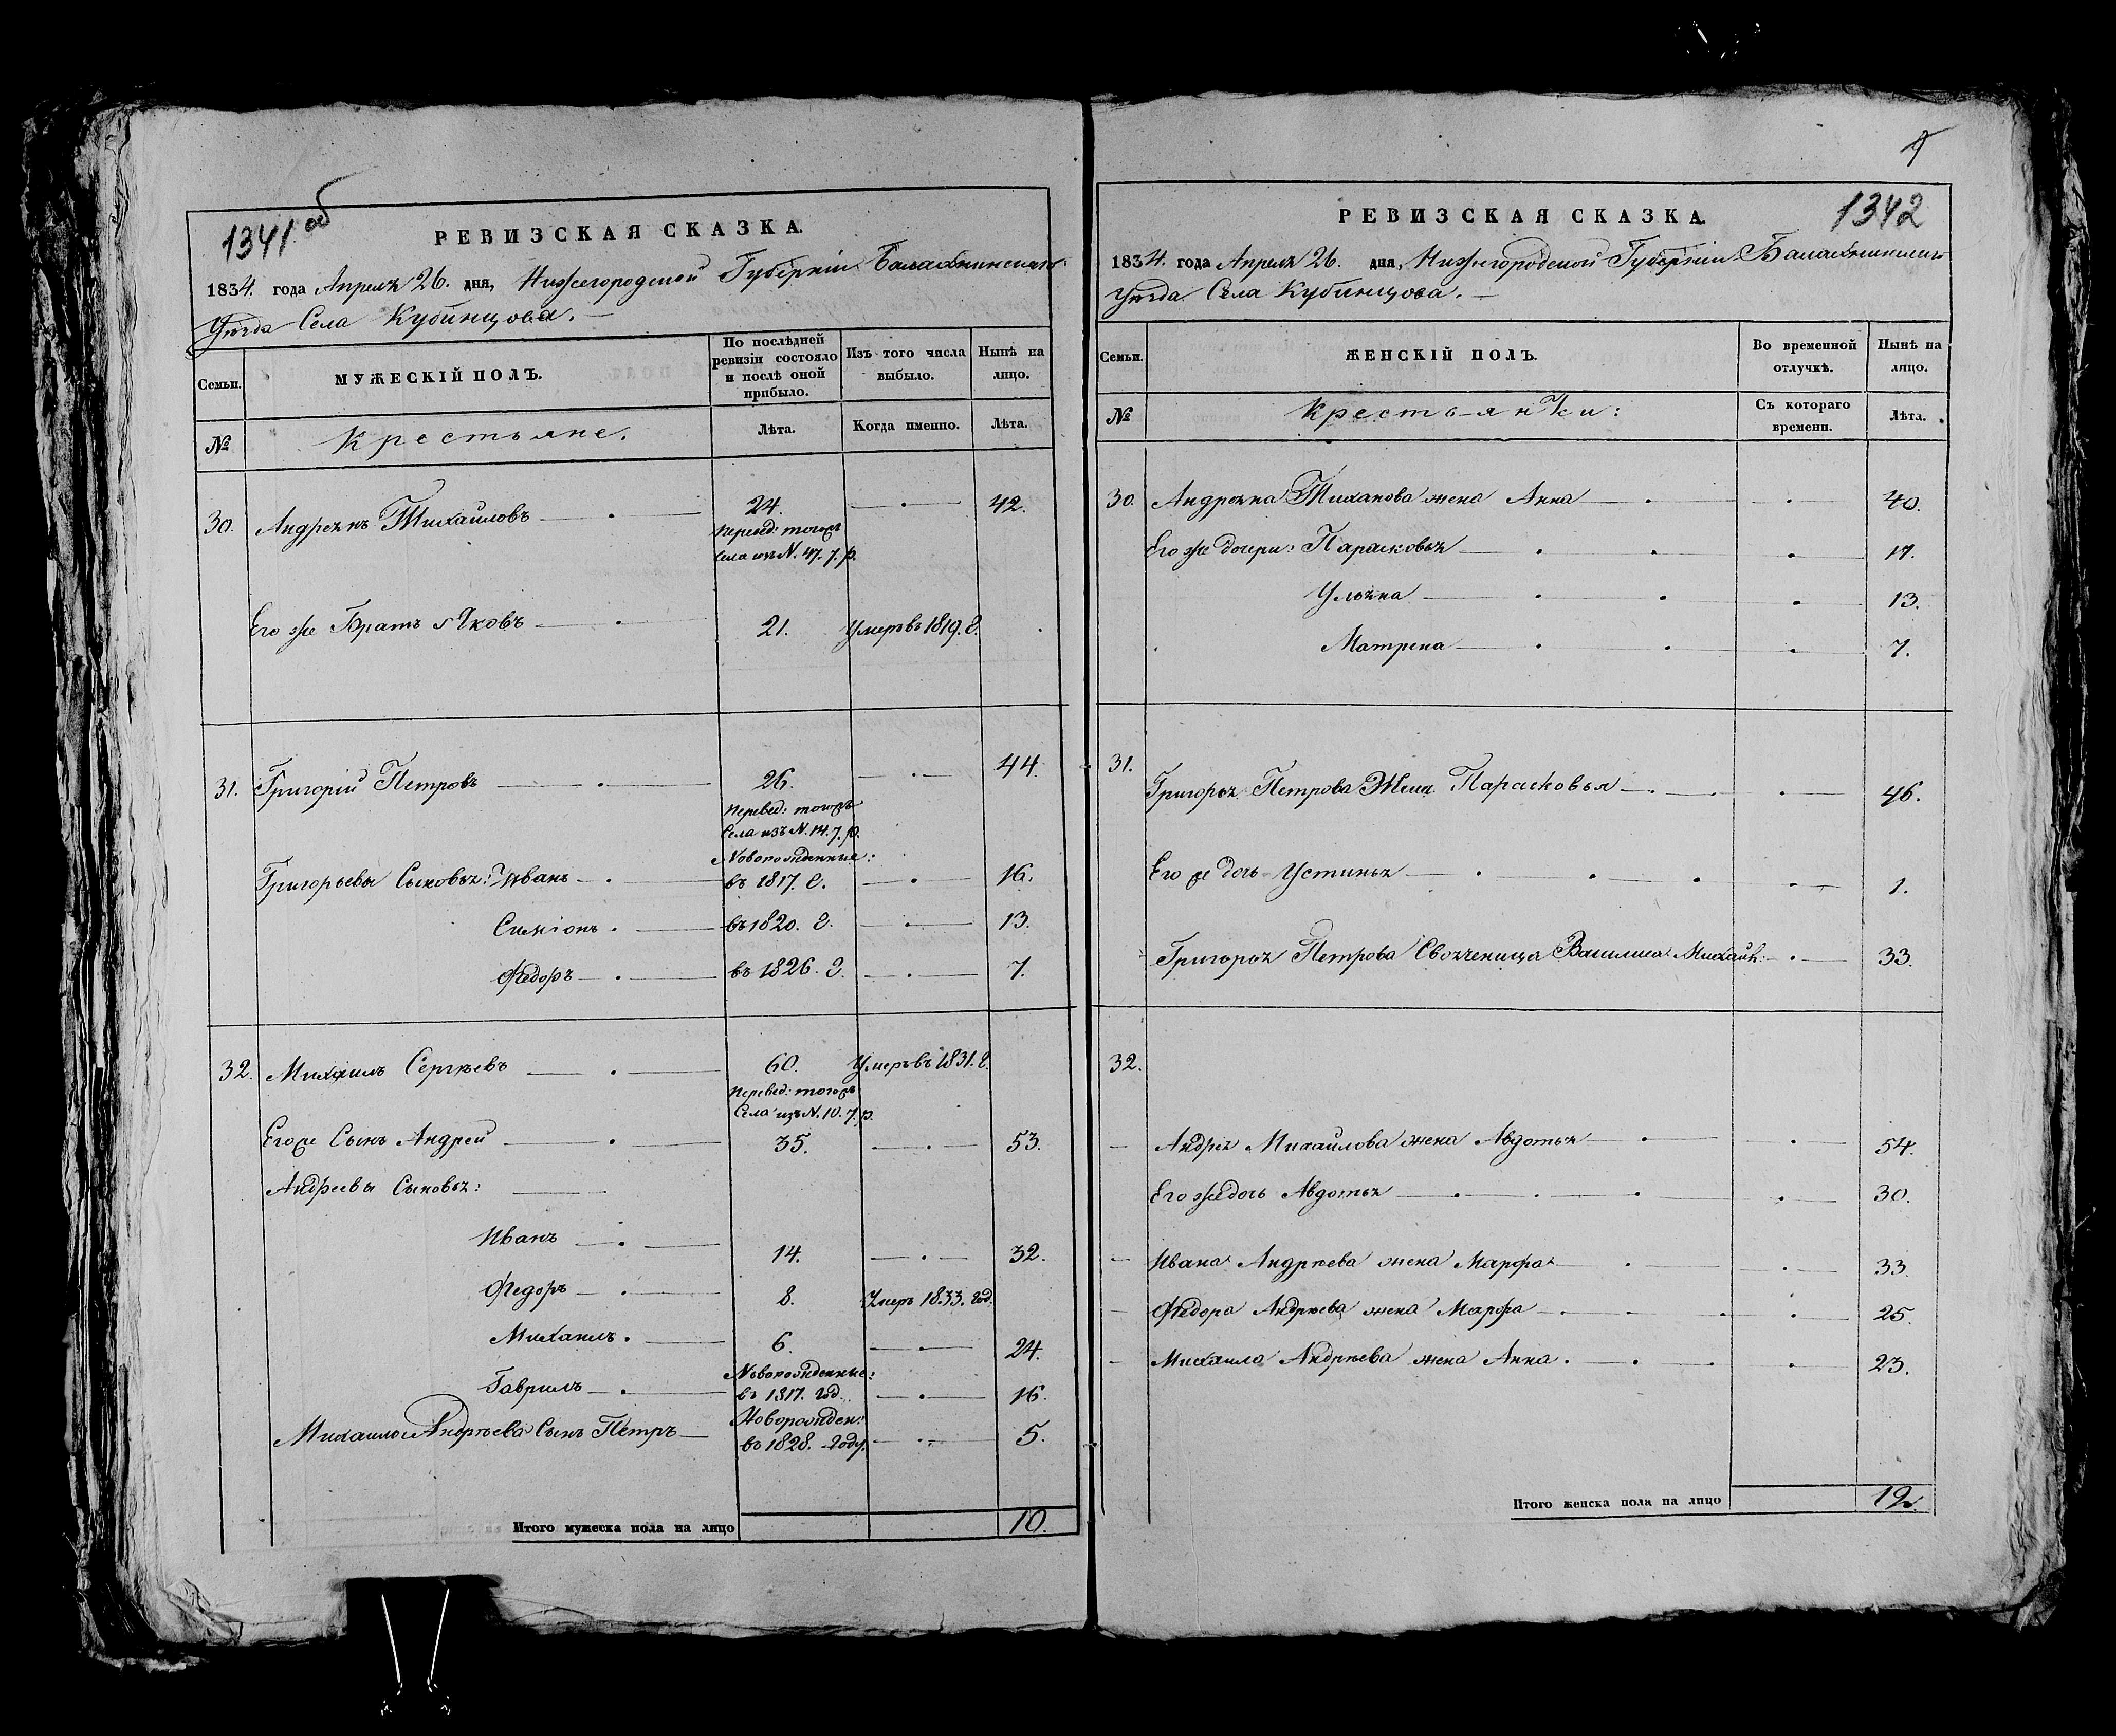 1341 об
РЕВИЗСКАЯ СКАЗКА.
1834. года Апреля 26. дня, Нижегородской Губерніи Балахнинскаго
Уѣзда Села Кубинцова.
Семьи.
МУЖЕСКІЙ ПОЛЪ.
По послѣдней ревизіи состояло и послѣ оной прибыло.
Изъ того числа выбыло.
Нынѣ на лицо.
№
Крестьяне.
Лѣта.
Когда именно.
Лѣта.
30. Андреянъ Михайловъ 24. 42.
Перевед: тогожъ
Села изъ N. 47. 7. р.
Его же Братъ Яковъ 21. Умеръ въ 1819. г.
31. Григорій Петровъ 26. 44.
Перевед: тогожъ
Села изъ N. 14. 7. р.
Новорожденные:
Григорьевы Сыновья: Иванъ въ 1817. г. 16.
Симіонъ въ 1820. г. 13.
Федоръ въ 1826. г. 7.
32. Михаилъ Сергѣевъ 60. Умеръ въ 1831. г.
Перевед: тогожъ
Села изъ N. 10. 7. р.
Егоже Сынъ Андрей 35. 53.
Андреевы Сыновья:
Иванъ 14. 32.
Федоръ 8. Умеръ 1833. год.
Михаилъ 6. 24.
Новорожденные:
Гаврилъ въ 1817. год. 16.
Новорожден:
Михаила Андрѣева Сынъ Петръ въ 1828. году. 5.
Итого мужеска пола на лицо 10.
1342
РЕВИЗСКАЯ СКАЗКА.
1834. года Апреля 26. дня, Нижегородской Губерніи Балахнинскаго
Уѣзда Села Кубинцова.
Семьи.
ЖЕНСКІЙ ПОЛЪ.
Во временной отлучкѣ.
Нынѣ на лицо.
№
Крестьянки:
Съ котораго времени.
Лѣта.
30. Андреяна Михаилова жена Анна 40.
Его же дочери: Парасковья 17.
Ульяна 13.
Матрена 7.
31.
Григорья Петрова Жена Парасковья 46.
Его же дочь Устинья 1.
Григорья Петрова Своячница Василиса Михайл: 33.
32.
Андрея Михаилова жена Авдотья 54.
Его же дочь Авдотья 30.
Ивана Андрѣева жена Марфа 33.
Федора Андрѣева жена Марфа 25.
Михаила Андрѣева жена Анна. 23.
Итого женска пола на лицо 12.